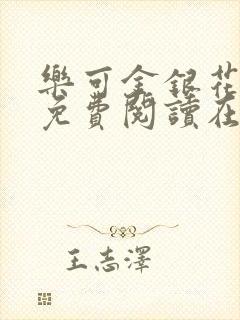 樂可金銀花
免費閱讀在
王志澤